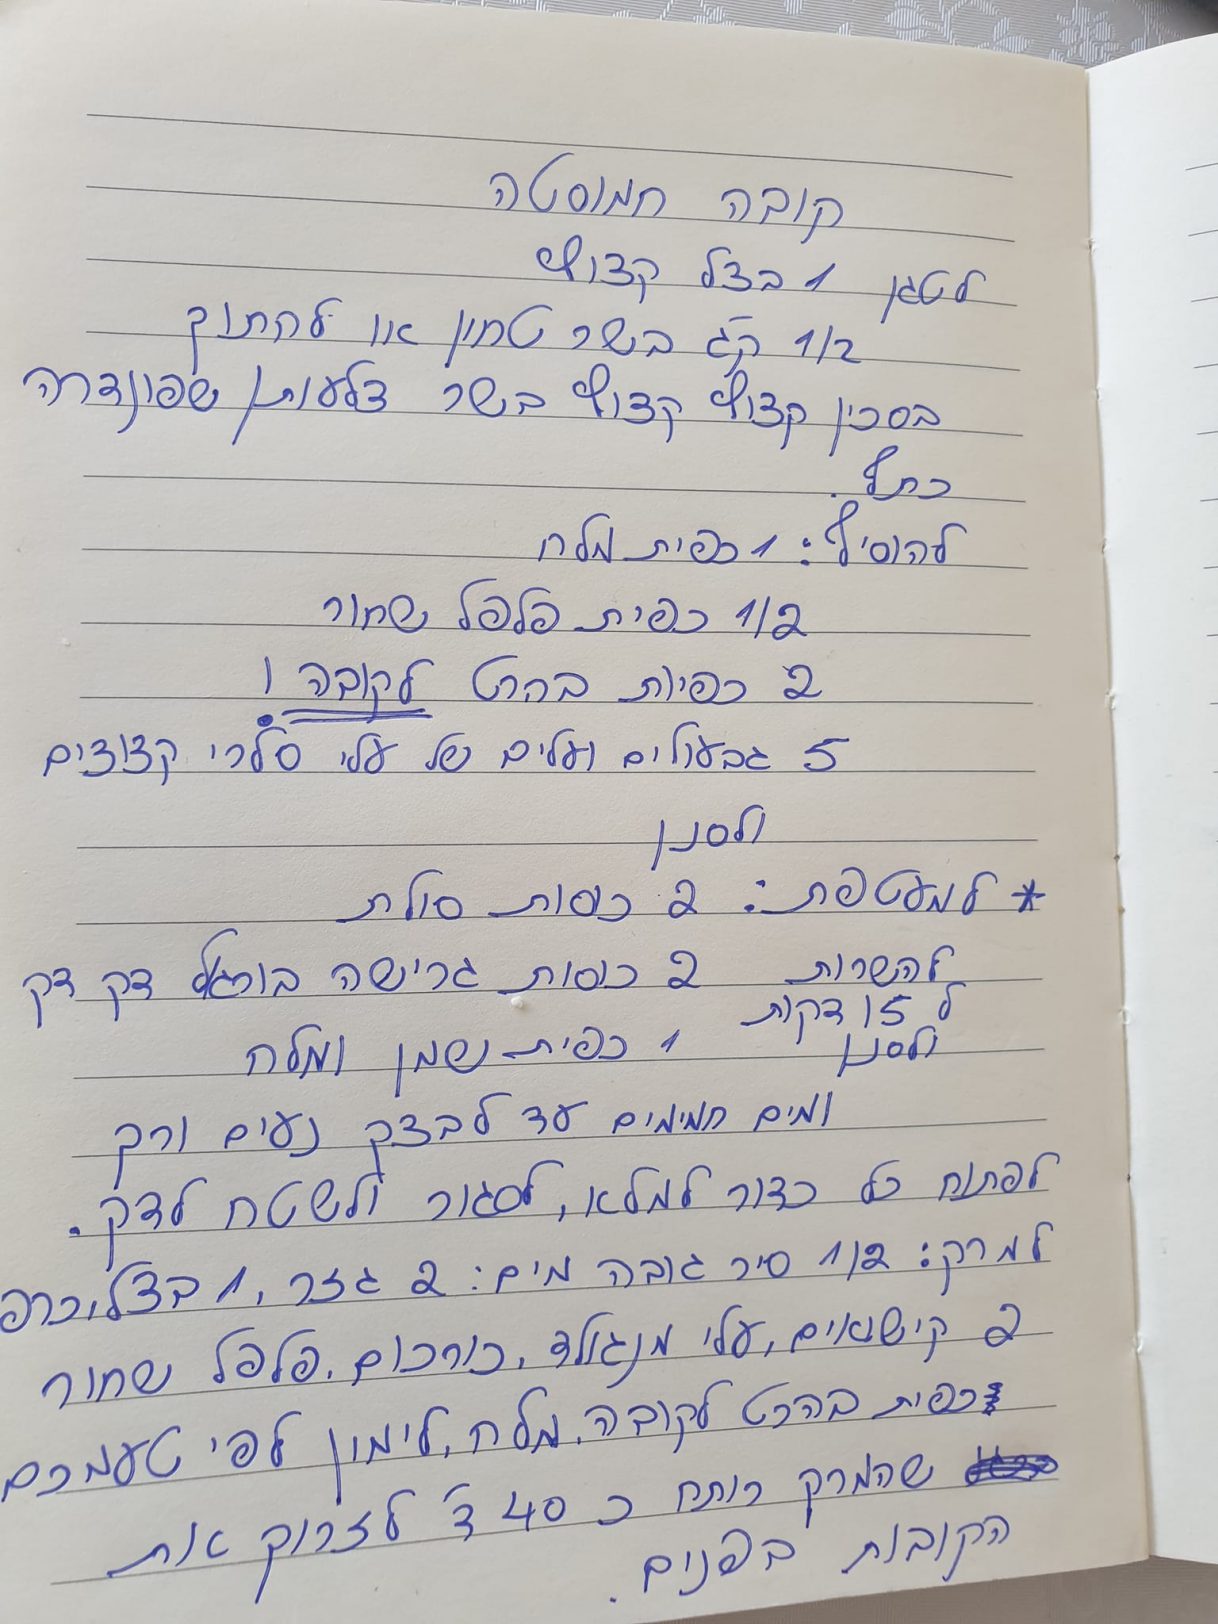 קובה חמוסטה
לטגן 1 בצל קצוץ
1/2 ק"ג בשר טחון או לחתוך
בסכין קצוץ קצוץ בשר צלעות/ שפונדרה
כתף.
להוסיף: 1 כפית מלח
1/2 כפית פלפל שחור
2 כפיות בהרט לקובה!
5 גבעולים ועלים של עלי סלרי קצוצים
ולסנן
* למעטפת: 2 כוסות סולת
להשרות 2 כוסות גרישה בורגול דק דק
ל 15 דקות
ולסנן 1 כפית שמן ומלח
ומים חמימים עד לבצק נעים ורך
לפתוח כל כדור למלא, לסגור ולשטח לדק.
למרק: 1/2 סיר גובה מים: 2 גזר, 1 בצל, כרפ
2 קישואים, עלי מנגולד, כורכום, פלפל שחור
כפית בהרט לקובה, מלח, לימון לפי טעמכם
שהמרק רותח כ 40 ד' לזרוק את
הקובות בפנים.